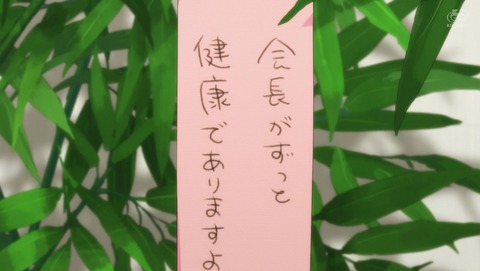 会長がずっと
健康でありますよ